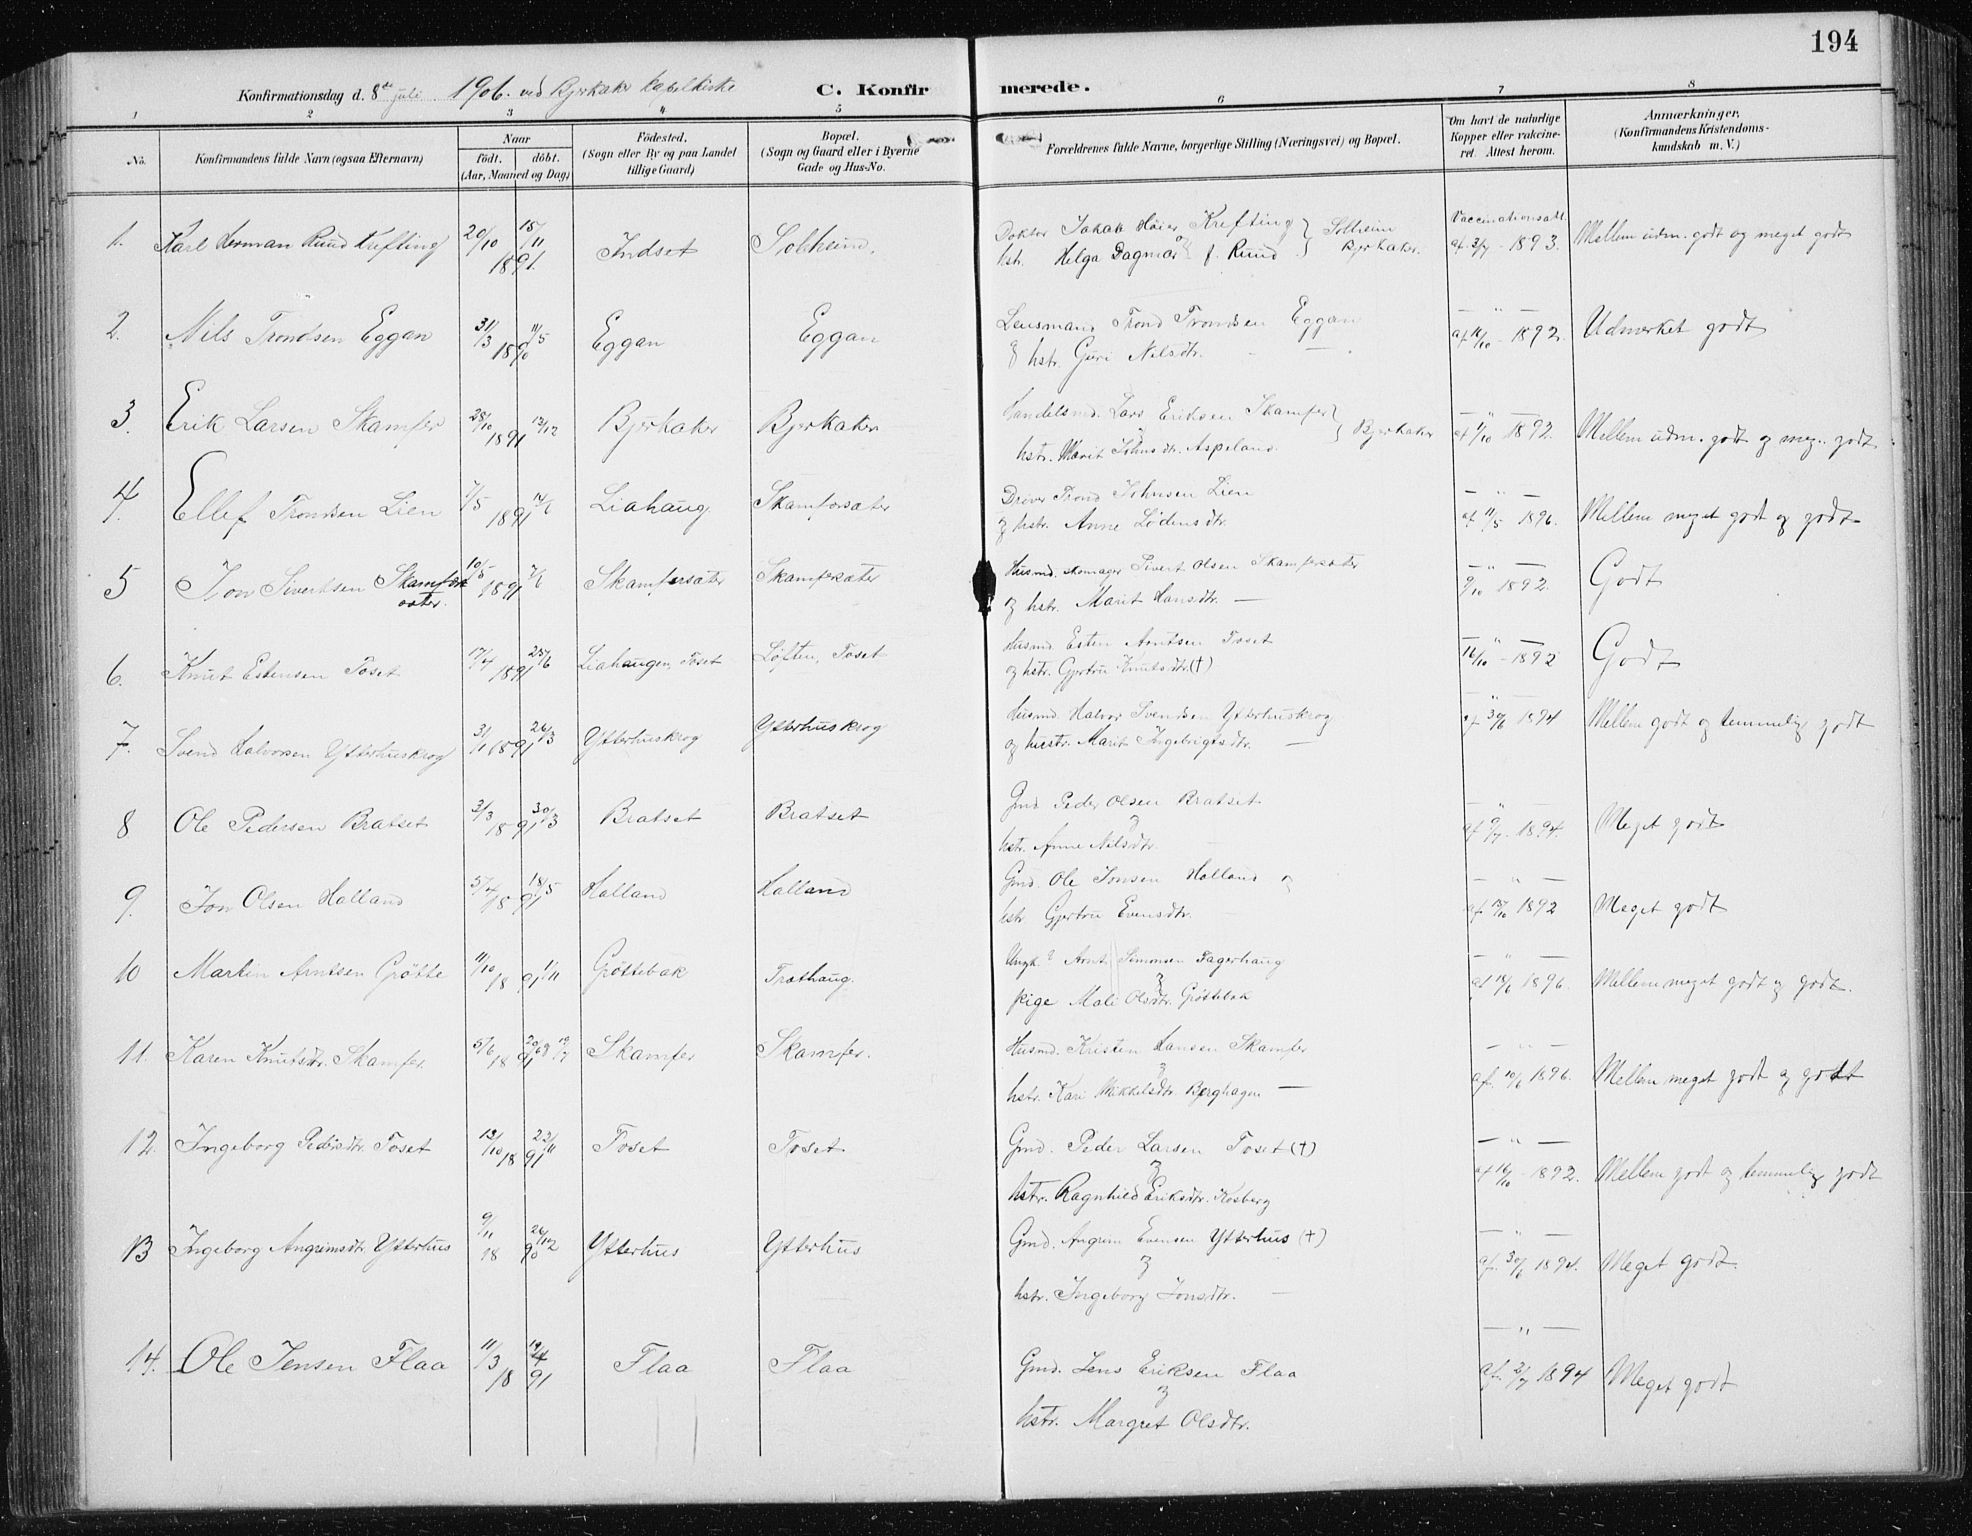 194
Konfirmationsdag d. 8de juli 1906. ved Bjerkaker kapelkirke C. Konfirmerede.
1 2 3 4 5 6 7 8
No. Konfirmandens fulde Navn (ogsaa Efternavn) Naar födt. döbt. (Aar, Maaned og Dag) Födested. (Sogn eller By og paa Landet tillige Gaard) Bopæl. (Sogn og Gaard eller i Byerne Gade og Hus-No. Forældrenes fulde Navne, borgerlige Stilling (Næringsvei) og Bopæl. Om havt de naturlige Kopper eller vakcineret. Attest herom. Anmærkninger. (Konfirmandens Kristendomskundskab m. V.)
1. Karl Herman Ruud Krefting 20/10 1891. 15/11 Indset Solheim. Doktor Jakob Höier Krefting
hstr. Helga Dagmar f. Ruud } Solheim Bjerkaker. Vaccinationsatt. af 3/7 - 1893. Mellem udm. godt og meget godt
2. Nils Trondsen Eggan 31/3 1890 11/5 Eggan Eggan Lensmand Trond Trondsen Eggan
& hstr. Guri Nilsdtr. — — " — af 16/10 - 1892. Udmerket godt
3. Erik Larsen Skamfer 28/10 1891 13/12 Bjerkaker Bjerkaker Handelsmd. Lars Eriksen Skamfer
hstr. Marit Johnsdtr. Aspeland. } Bjerkaker — " — af 1/10 1892. Mellem udm. godt og meg. godt
4. Ellef Trondsen Lien 7/5 1891 14/6 Liahaug Skamfersæter Driver Trond Johnsen Lien
og hstr. Anne Lödensdtr. — " — af 11/5 1896. Mellem meget godt og godt
5 Jon Sivertsen Skamfersæter. 10/5 1891 7/6 Skamfersæter Skamfersæter Husmd. skomager Sivert Olsen Skamfersæter
og hstr. Marit Hansdtr. — — " — 9/10 1892. Godt
6. Knut Estensen Toset 17/4 1891 25/6 Liahaugen, Toset Löften, Toset Husmd. Esten Arntsen Toset
og hstr. Gjertru Knutsdtr. (†) — " — 16/10 - 1892 Godt
7. Svend Halvorsen Ytterhuskrog 31/1 1891 26/3 Ytterhuskrog Ytterhuskrog Husmd. Halvor Svendsen Ytterhuskrog
og hustr. Marit Ingebrigtsdtr. — — " — af 30/6 1894 Mellem godt og temmelig godt
8 Ole Pedersen Bratset 3/3 1891 30/3 Bratset Bratset Gmd. Peder Olsen Bratset
& hstr. Anne Nilsdtr. — " — af 9/7 1894. Meget godt
9. Jon Olsen Halland 5/4 1891 18/5 Halland Halland Gmd. Ole Jonsen Halland og
hstr. Gjertru Evensdtr. — " — af 13/10 1892 Meget godt
10 Martin Arntsen Grötte 11/10 1891 1/11 Gröttebak Træthaug. Ungk. Arnt Simonsen Fagerhaug
& pige Mali Olsdtr. Gröttebak — " — af 10/6 1896. Mellem meget godt og godt.
11. Karen Knutsdtr. Skamfer. 5/6 1891 Skamfer Skamfer. Husmd. Kristen Hansen Skamfer
& hstr. Kari Mikkelsdtr. Berghagen — — " — af. 10/6 1896. Mellem meget godt og godt
12. Ingeborg Pedersdtr. Toset 13/10 1891 22/11 Toset Toset Gmd. Peder Larsen Toset (†)
& hstr. Ragnhild Eriksdtr. Kosberg — " — af 16/10 - 1892. Mellem godt og temmelig godt
13 Ingeborg Angrimsdtr. Ytterhus 9/11 1890 26/12 Ytterhus Ytterhus Gmd. Angrim Evensen Ytterhus (†)
& hstr. Ingeborg Jonsdtr. — — " — af. 30/6 1894. Meget godt.
14. Ole Jensen Flaa 11/3 1891 19/4 Flaa Flaa Gmd. Jens Eriksen Flaa
& hstr. Margret Olsdtr. — " — af. 2/7 1894 Meget godt